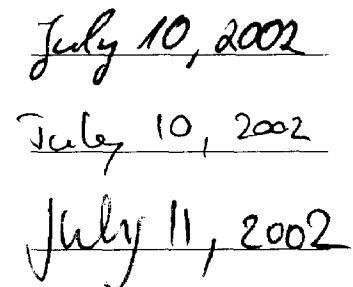 July 10, 2002
July 10, 2002
July 11, 2002